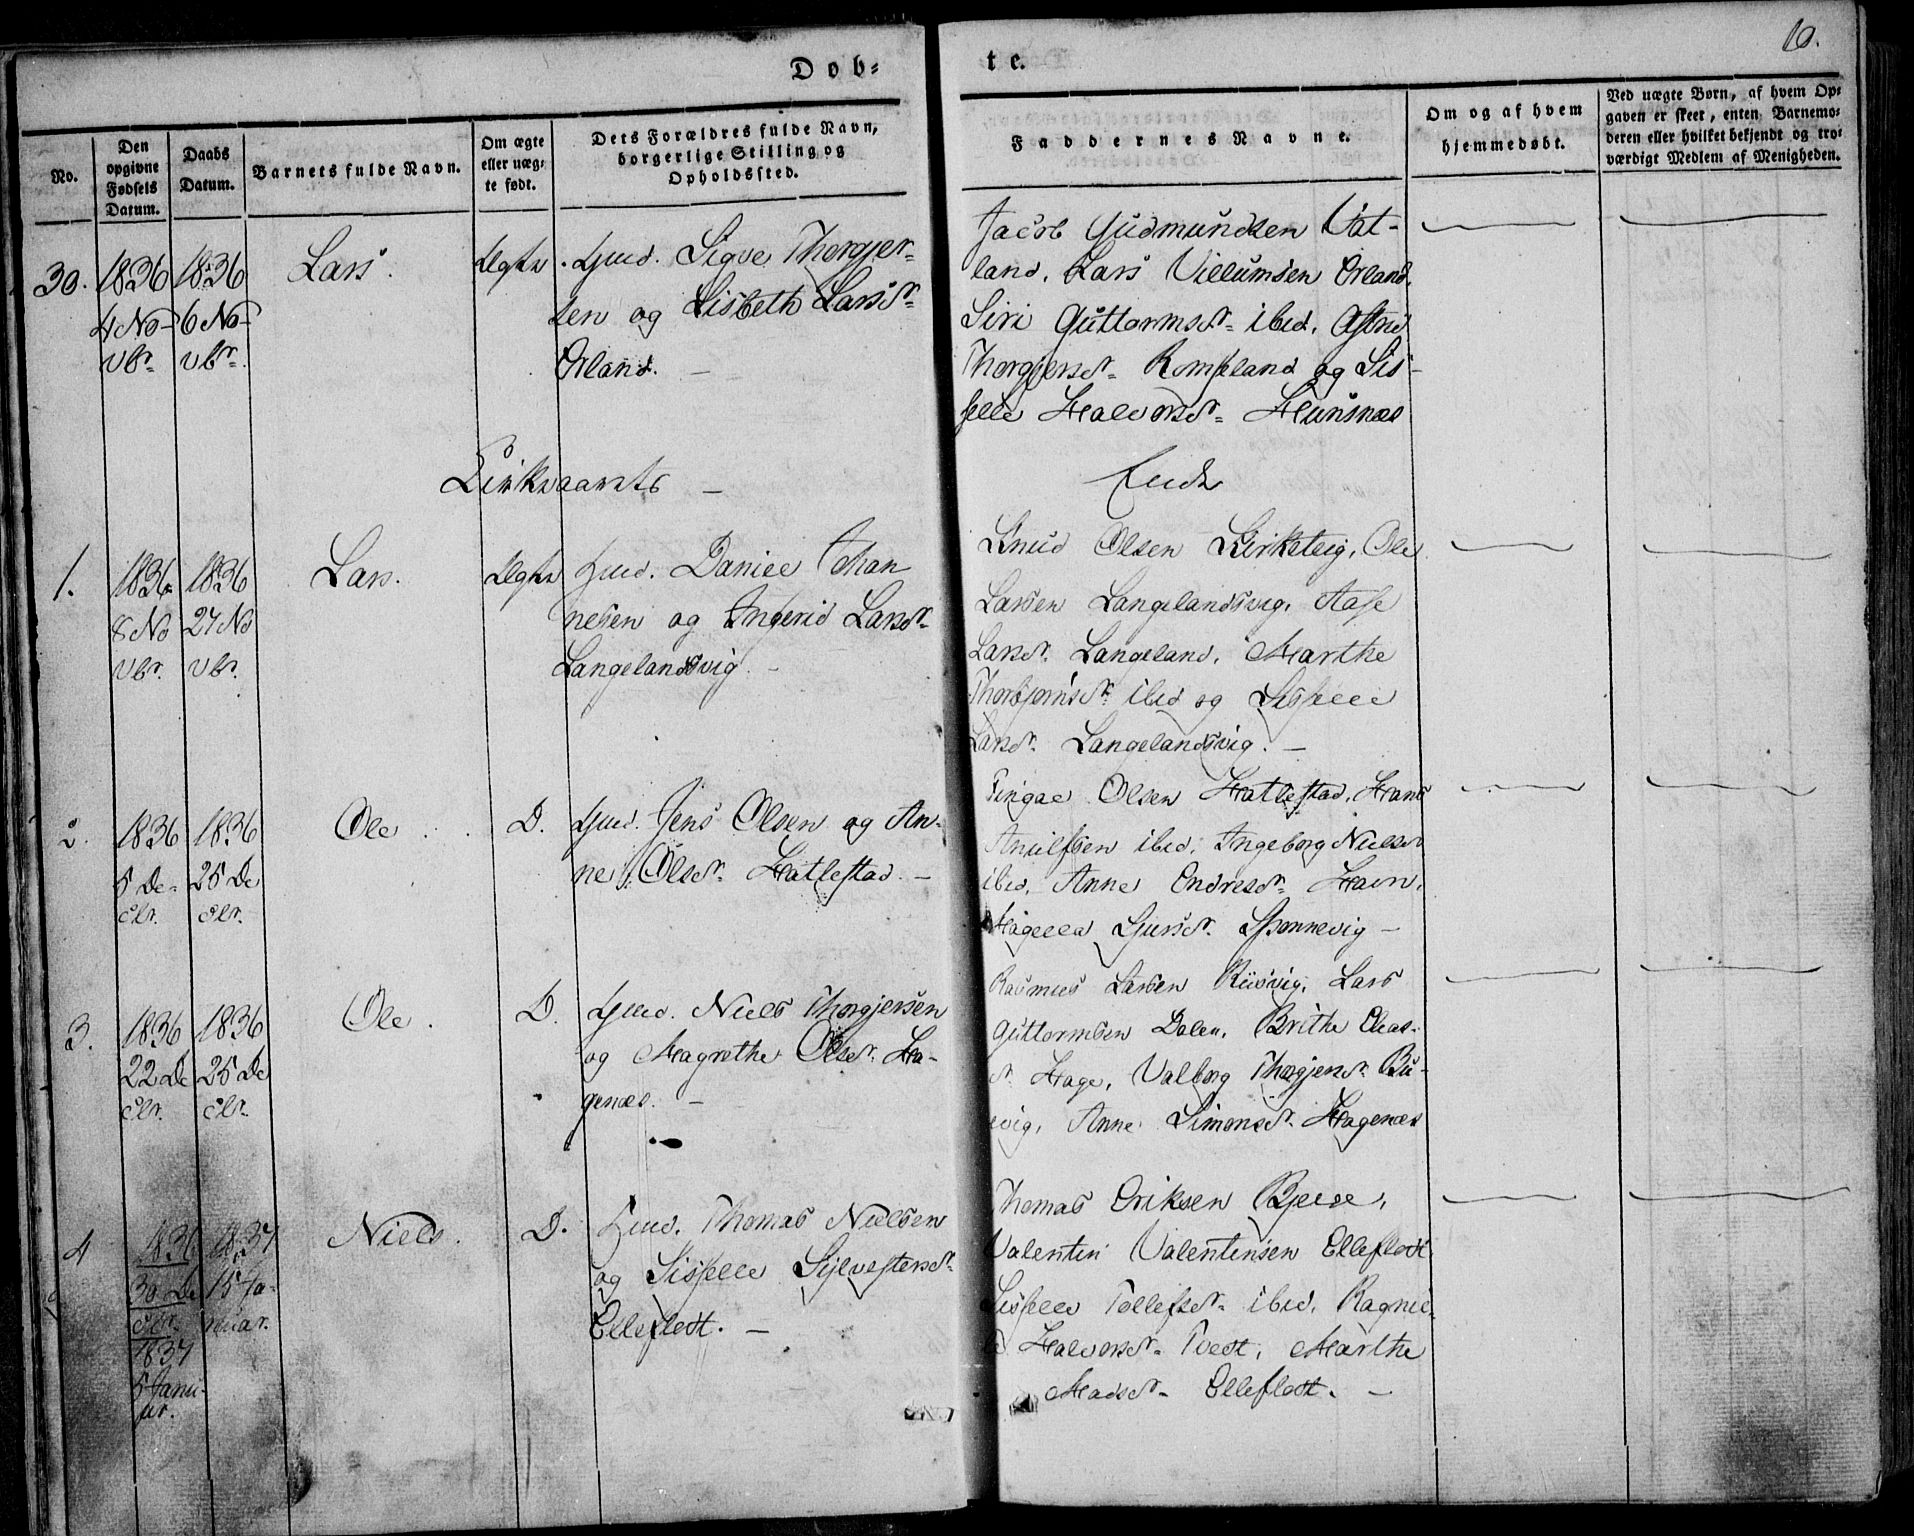 Døb-
te.
10.
No.
Den opgivne Fødsels Datum.
Daabs Datum.
Barnets fulde Navn.
Om ægte eller uæg- te født.
Dets Forældres fulde Navn, borgerlige Stilling og Opholdssted.
Faddernes Navne.
Om og af hvem hjemmedøbt.
Ved uægte Børn, af hvem Op- gaven er skeet, enten Barnemo- deren eller hvilket bekjendt og tro- værdigt Medlem af Menigheden.
30.
1836
4 No-
vbr.
1836
6 No-
vbr.
Lars.
Ægte
Gmd. Sigve Thorgjer-
sen og Lisbeth Larsdr.
Ørland. -
Jacob Gudmundsen Vat-
land, Lars Villumsen Ørland,
Siri Guttormsdr. ibid,
Thorgjersdr. og Sis-
selle Halvorsdr.
1.
1836
8 No
vbr.
1836
27 No
vbr.
Lars.
Ægte
Huusm. Daniel Johan
nesen og Ingerid Larsdr.
Langelandsvig. -
Knud Olsen Kirketeig, Ole
Larsen Langelandsvig, Aase
Larsdr. Langeland, Marthe
Thorbjørnsdr. ibid og Sisselle
Larsdr. Langelandsvig. -
2.
1836
5 De-
cbr.
1836
25 De
cbr.
Ole
D.
Gmd. Jens Olsen og An-
ne Olsdr. Hatlestad. -
Olsen Hatlestad, Hans
ibid, Ingeborg Nielsdr
ibid, Anne Endresdr. Havn,
-
3.
1836
22 De
cbr.
1836
25 De
cbr.
Ole.
D.
Gmd. Niels Thorgjersen
og Magrethe Olsdr. Ha-
genæs. -
Rasmus Larsen Lars
Guttormsen Dalen, Brithe Elias-
dr. Hage, Valborg Thorgjersdr. Bu-
evig, Anne Simonsdr. Hagenæs
4
1836
30 De
cbr.
1837
5 Janu-
ar.
1837
15 Ja-
nuar.
Niels.
D.
Huusm. Thomas Nielsen
og Sisselle Sylvestersdr.
Elleflodt. -
Thomas Eriksen
Valentin Valentinsen Elleflodt
Sisselle Tollefsdr. ibid, Ragnil-
d Halvorsdr. Tvedt, Marthe
Madsdr. Elleflodt. -